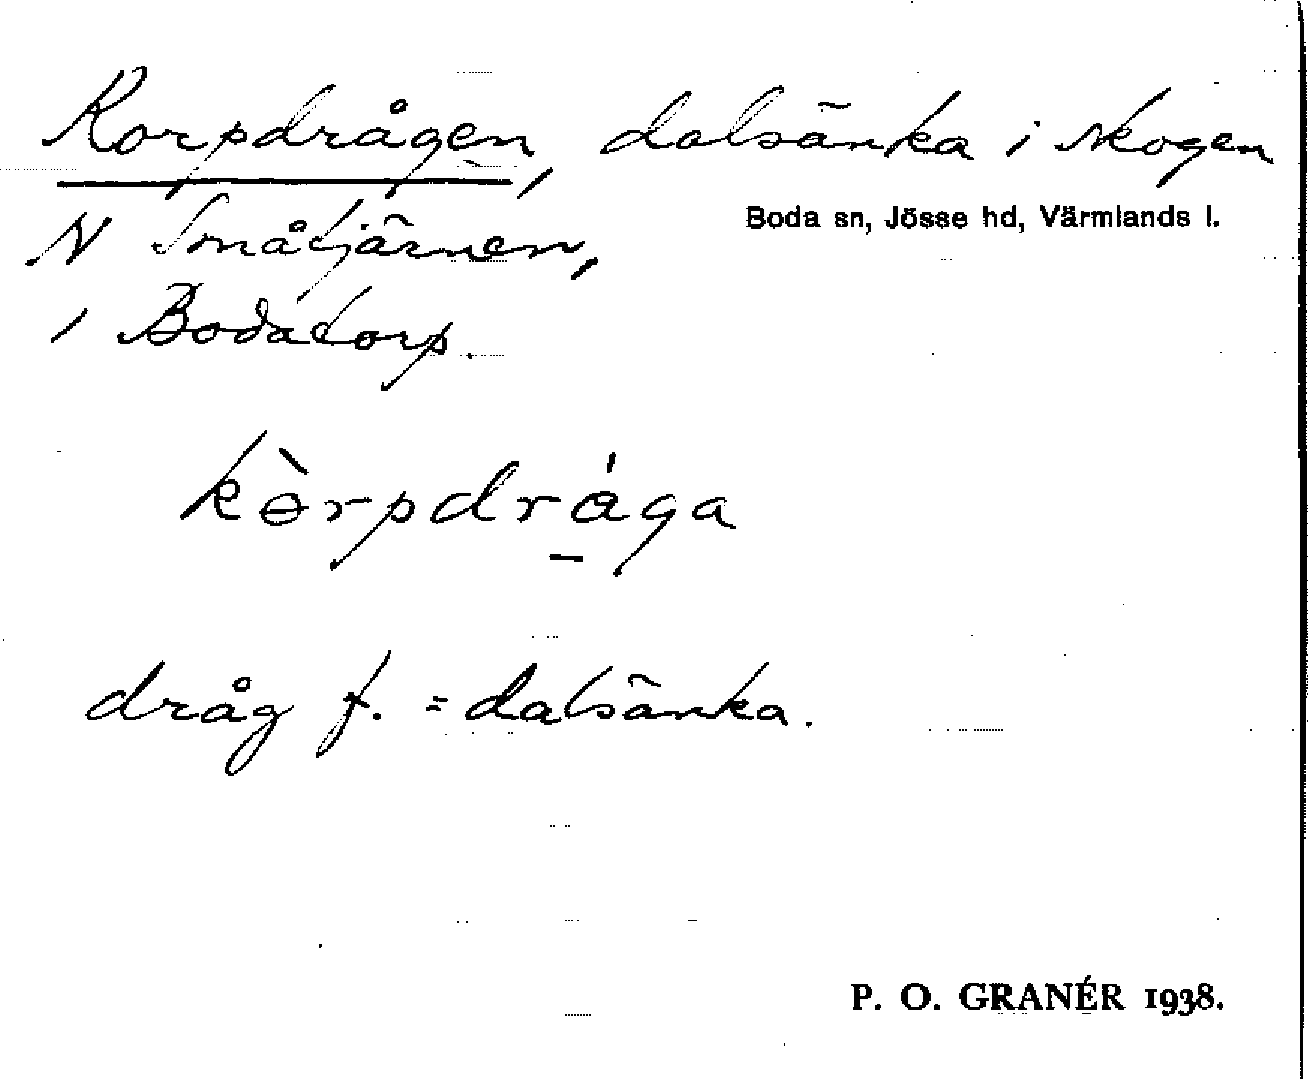 Korpdrågen, dalsänka i skogen
Boda sn, Jösse hd, Värmlands l.
N Småtjärnen,
i Bodatorp.
kɵ̀rpdrága
dråg f. = dalsänka.
P. O. GRANÉR 1938.